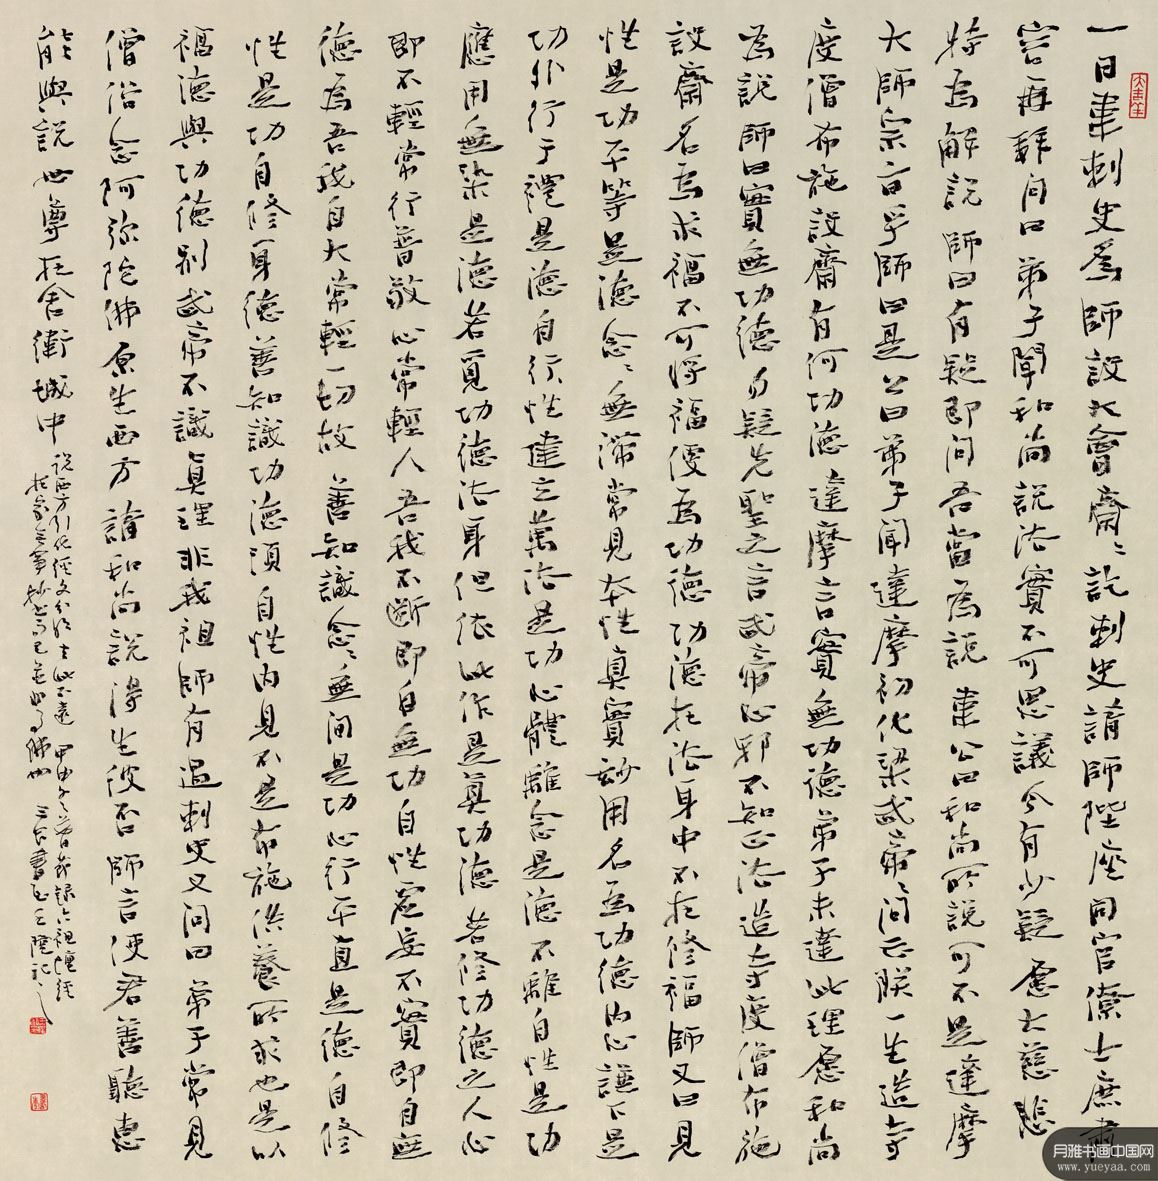 一日韋刺史為師設大會齋齋訖刺史請師陞座同官僚士庶肅
容再拜問曰弟子聞和尚說法實不可思議今有少疑願大慈悲
特為解說師曰有疑即問吾當為說韋公曰和尚所說可不是達摩
大師宗旨乎師曰是公曰弟子聞達摩初化梁武帝帝問云朕一生造寺
度僧布施設齋有何功德達摩言實無功德弟子未達此理願和尚
為說師曰實無功德勿疑先聖之言武帝心邪不知正法造寺度僧布施
設齋名為求福不可將福便為功德功德在法身中不在修福師又曰見
性是功平等是德念念無滯常見本性真實妙用名為功德內心謙下是
功外行于禮是德自性建立萬法是功心體離念是德不離自性是功
應用無染是德若覓功德法身但依此作是真功德若修功德之人心
即不輕常行普敬心常輕人吾我不斷即自無功自性虛妄不實即自無
德為吾我自大常輕一切故善知識念念無間是功心行平直是德自修
性是功自修身是德善知識功德須自性內見不是布施供養所求也是以
福德與功德別武帝不識真理非我祖師有過刺史又問曰弟子常見
僧俗念阿彌陀佛願生西方請和尚說得生彼否師言使君善聽惠
能與說世尊在舍衛城中
說西方引化經文分明去此不遠 甲申 六祖壇經
月雅书画中国网
www.yueyaa.com